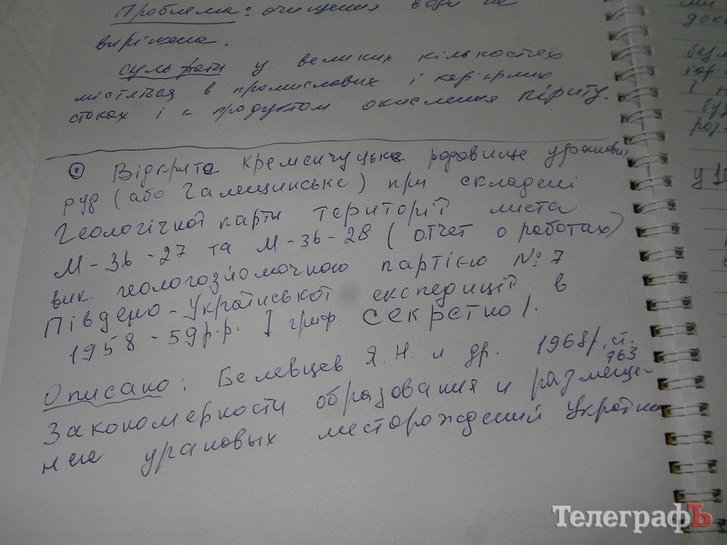 Проблема: очищення води не
вирішена.
сульфати у великих кількостях
містяться в промислових і кар'єрних
стоках і є продуктом окислення піриту.
Відкрите кременчуцьке родовище уранових
руд (або Галещинське) при складені
Геологічної карти території листа
М-36-27 та М-36-28 (отчет о работах)
вик. геологозйомочною партією №7
Південо-Української експедиції в
1958-59р.р. гриф. секретно!.
Описано: Белевцев Я.Н и др. 1968р. ст.
763
Закономерности образования и размеще-
ние урановых месторождений Украине
у 1
ТелеграфЪ